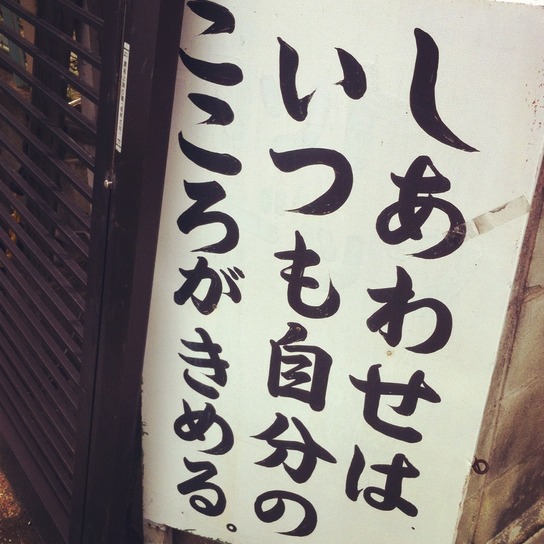 しあわせは
いつも自分の
こころがきめる。